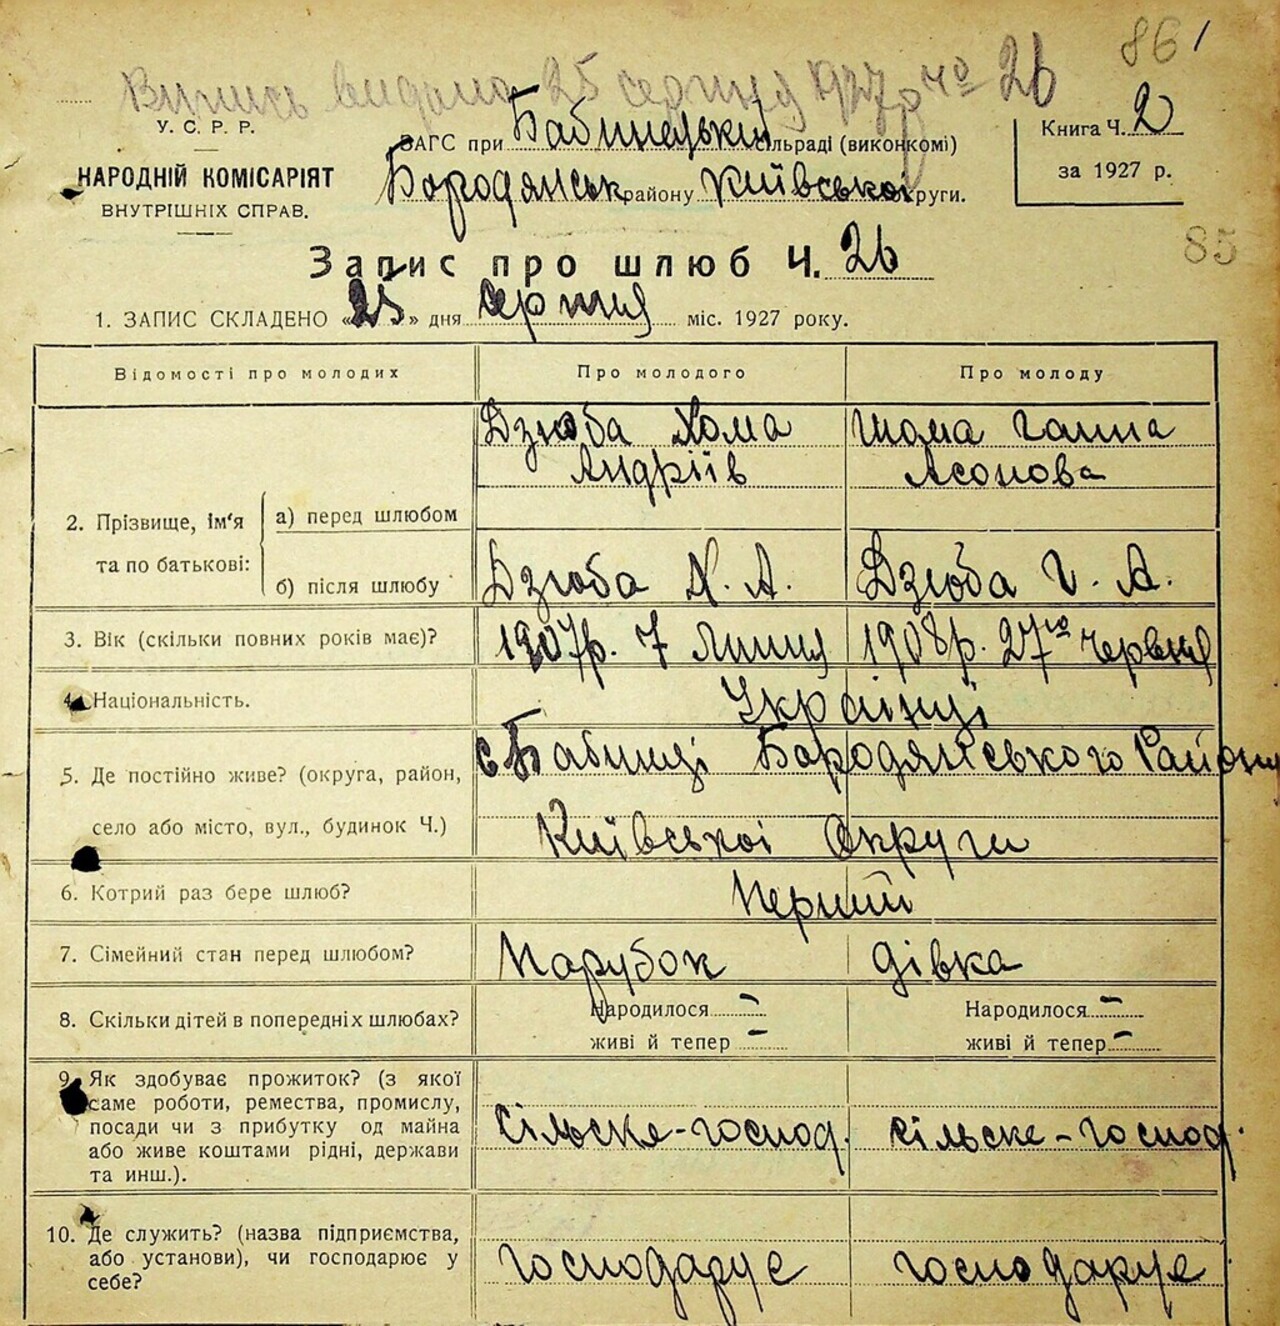 86 /
Випись видана 25 серпня 1927 р № 26
У. С. Р. Р.
НАРОДНІЙ КОМІСАРІЯТ
ВНУТРІШНІХ СПРАВ.
ЗАГС при Бабинецькій сільраді (виконкомі)
Бородянськ району Київської округи.
Книга Ч. 2
за 1927 р.
85
Запис про шлюб Ч. 26
1. ЗАПИС СКЛАДЕНО «25» дня серпня міс. 1927 року.
Відомості про молодих Про молодого Про молоду
2. Прізвище, ім'я та по батькові:
а) перед шлюбом
Дзюба Хома
Андріїв
Шома Ганна
Асонова
б) після шлюбу
Дзюба Х. А. Дзюба Г. А.
3. Вік (скільки повних років має)? 1907р. 7 Липня 1908р. 27го червня
4. Національність. Українці
5. Де постійно живе? (округа, район, с Бабинці Бородянського Району
село або місто, вул., будинок Ч.) Київської Округи
6. Котрий раз бере шлюб? Перший
7. Сімейний стан перед шлюбом? Парубок дівка
8. Скільки дітей в попередніх шлюбах?
Народилося – Народилося –
живі й тепер – живі й тепер –
9. Як здобуває прожиток? (з якої
саме роботи, ремества, промислу,
посади чи з прибутку од майна
або живе коштами рідні, держави
та инш.).
сільске-господ. сільске-господ.
10. Де служить? (назва підприємства,
або установи), чи господарює у
себе?
господарує господарує